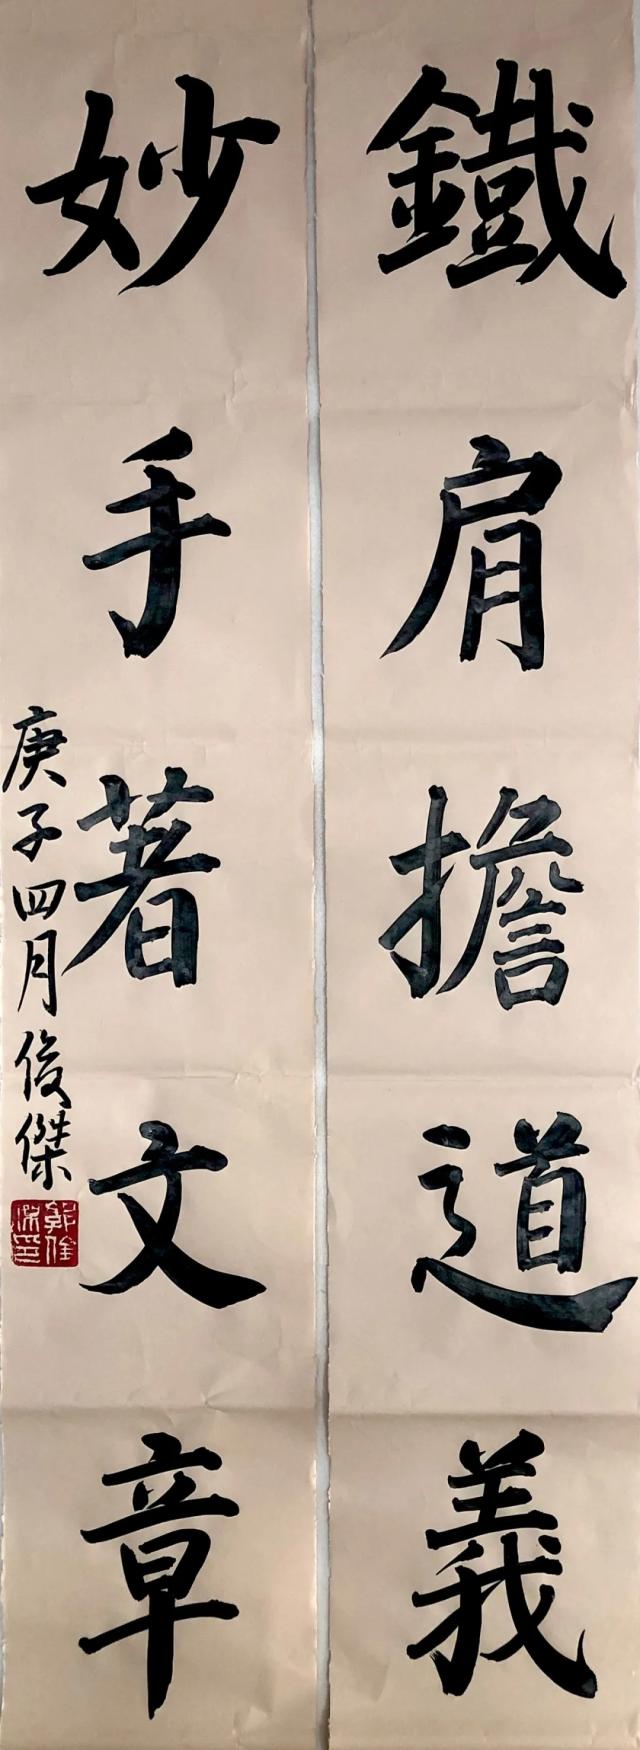 鐵肩擔道義
妙手著文章
庚子四月俊傑
郭俊傑印